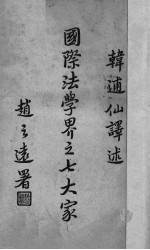 韓逋仙譯述
國際法學界之七大家
趙之遠署